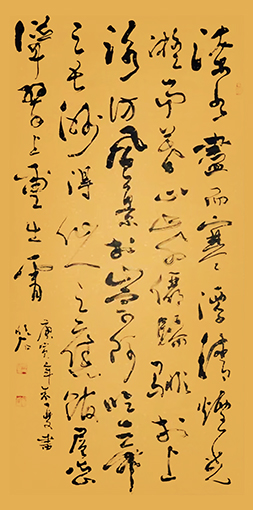 潦水盡而寒潭清煙光
凝而暮山紫儼驂騑於上
路訪風景於崇阿臨帝子
之長洲得仙人之舊館層巒
聳翠上重出霄
庚寅年 書